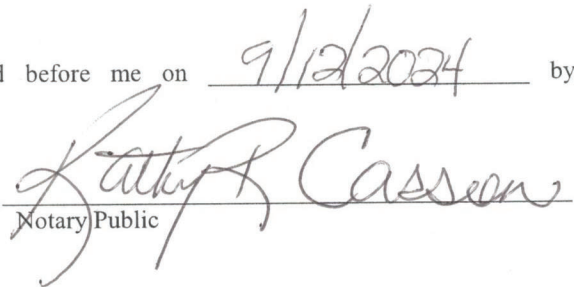 d before me on 9/12/2024 by
Kathy R Casson
Notary Public